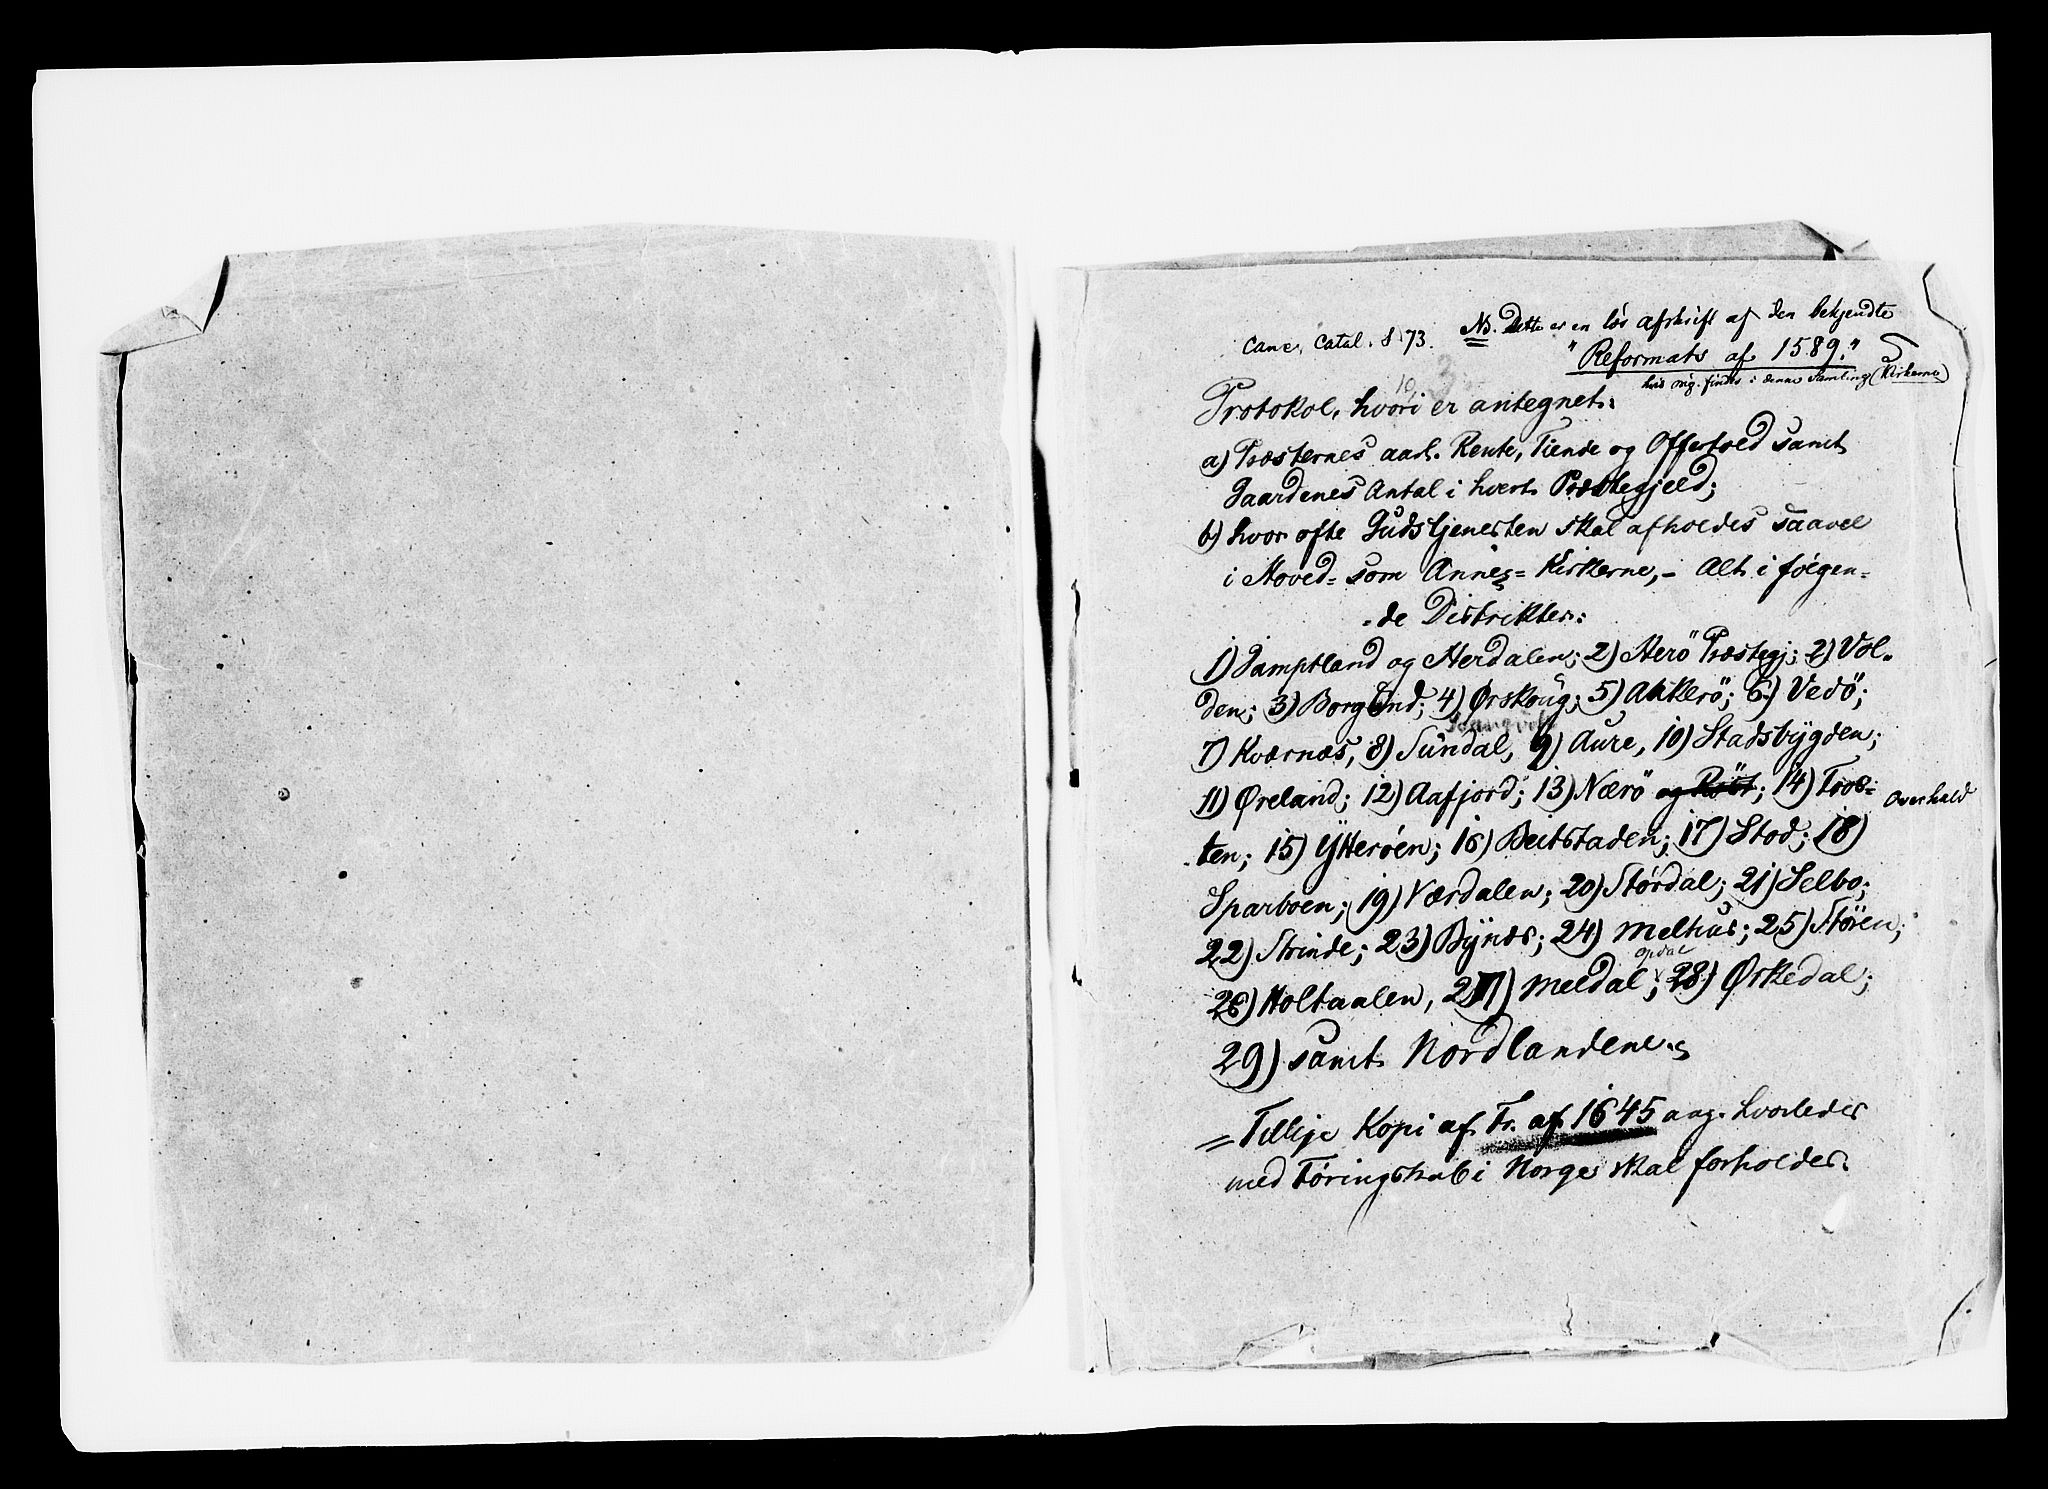 NB. Dette er en løs afskrift af den bekjendte
Canc. Catal. 873.
"Reformats af 1589."
hvis org. findes i denne Samling (Kirkerne)
10, 3
Protokol, hvori er antegnet:
a) Præsternes aarl. Rente, Tiende og Offertold samt
Gaardenes Antal i hvert Præstegjeld;
b) hvor ofte Gudstjenesten skal afholdes saavel
i Hoved= som Annex= Kirkerne, – Alt i følgen=
=de Distrikter:
1) Jamptland og Herdalen; 2) Herö Præstegj; 2) Vol=
den; 3) Borgund; 4) Ørskoug; 5) Akkerö; 6) Vedö;
7) Kværnæs, 8) Sundal, 9) Aure, 10) Stadsbygden;
11) Øreland; 12) Aafjord; 13) Nærö og Röst; 14) Froe=
Overhald
ten; 15) Ytterøen; 16) Beitstaden; 17) Stod; 18)
Sparboen; 19) Værdalen; 20) Størdal; 21) Selbo;
22) Strinde; 23) Bynæs; 24) Melhus; 25) Støren;
Opdal
26) Holtaalen, 27) Meldal; 28) Ørkedal;
29) samt Nordlandene.
= Tillige Kopi af Fr. af 1645 ang. hvorledes
med Føringskab i Norge skal forholdes.